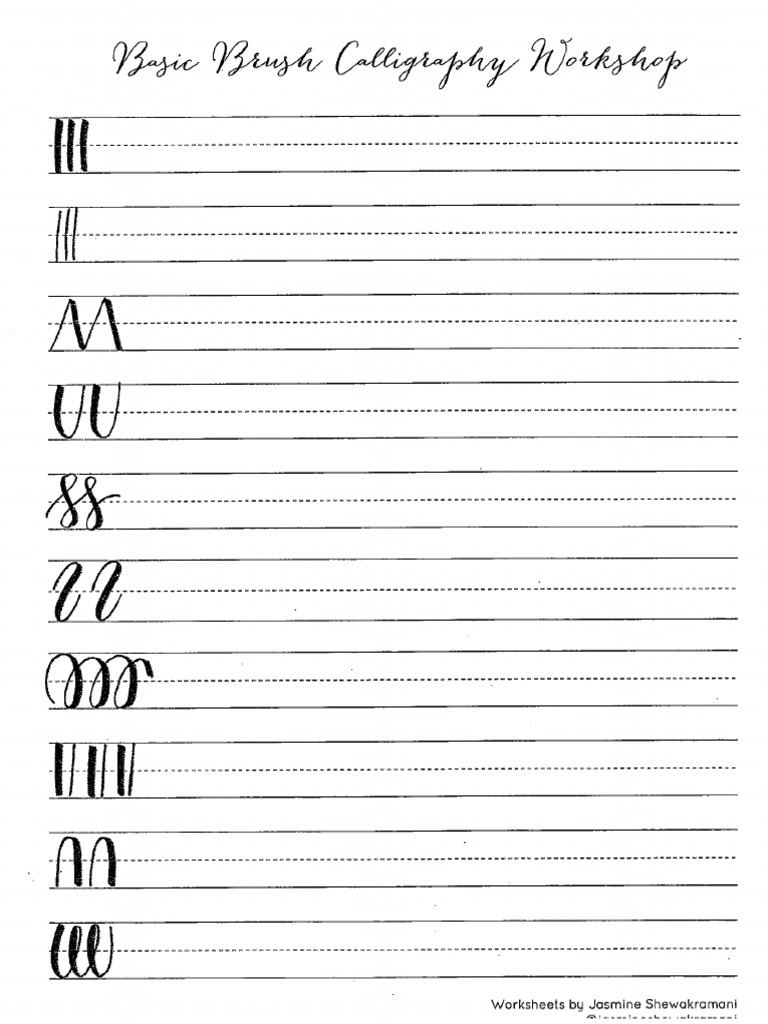 Basic Brush Calligraphy Workshop
Worksheets by Jasmine Shewakramani
@jasmineshewakramani